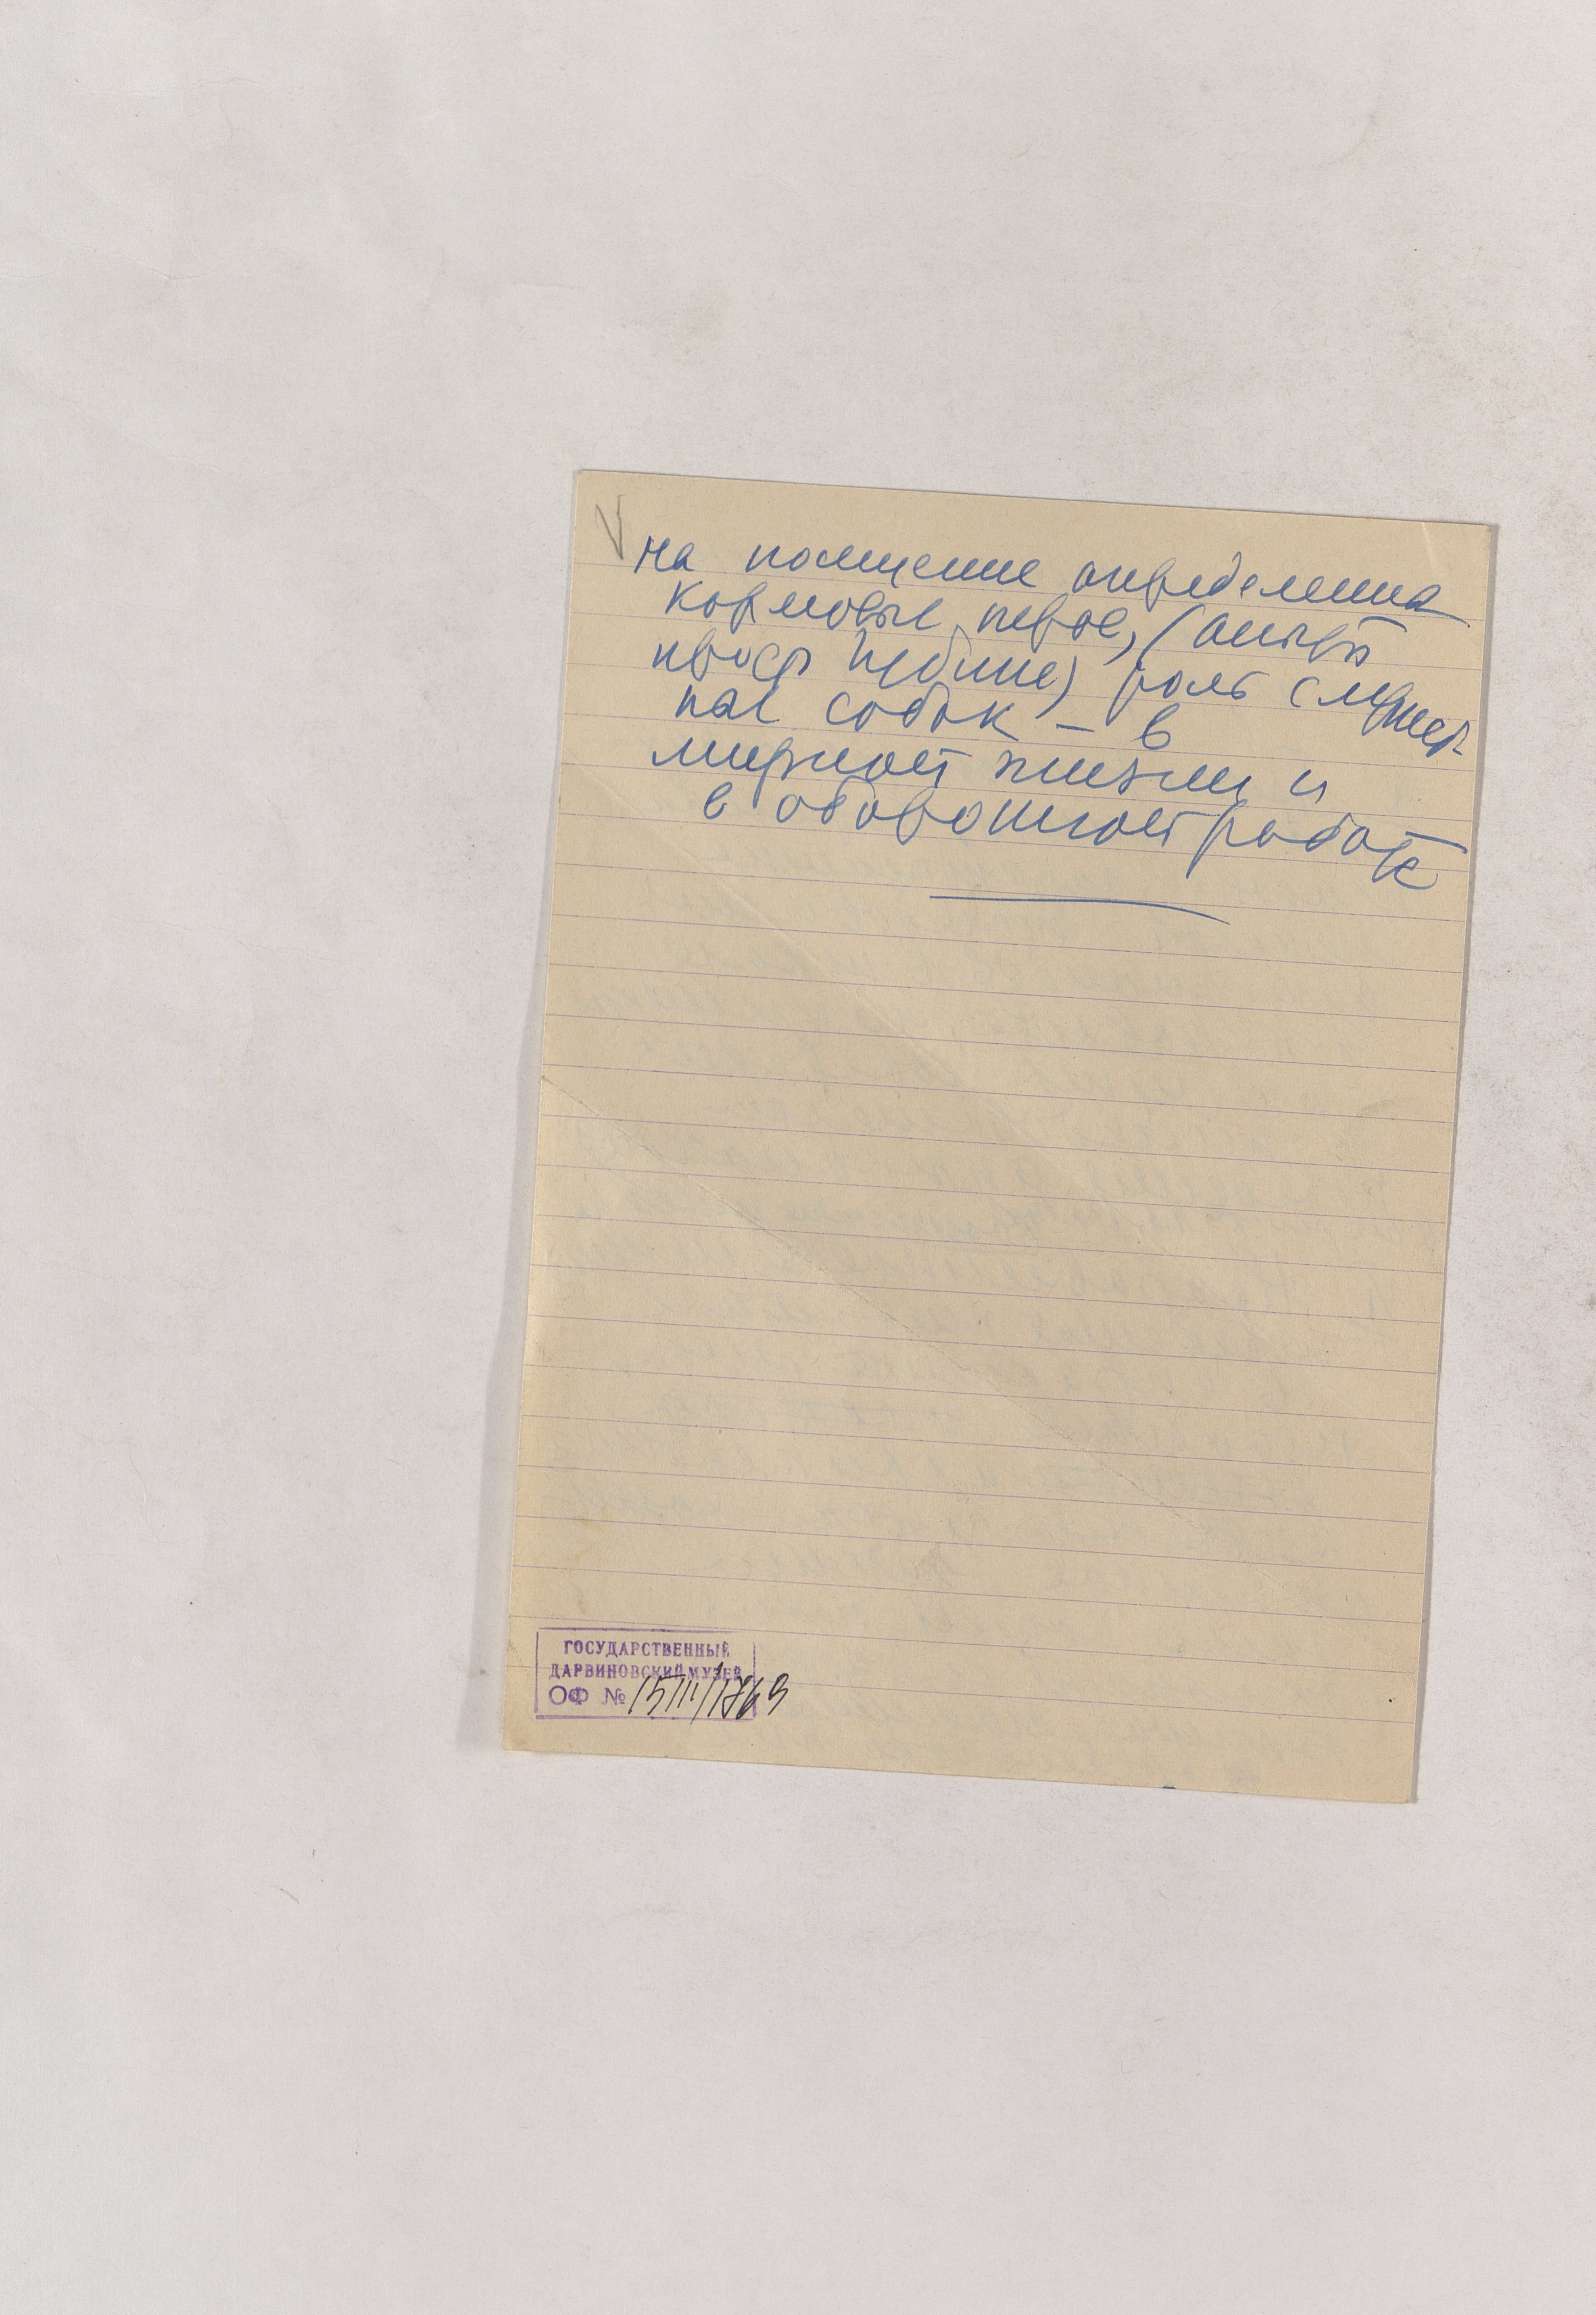 на посещение определенна
кормовые (опыты
проф Губине) роль служеб
ных собак – в
мирной жизни и
в оборонной работе
ГОСУДАРСТВЕННЫЙ
ДАРВИНОВСКИЙ МУЗЕЙ
ОФ № 15111/1769